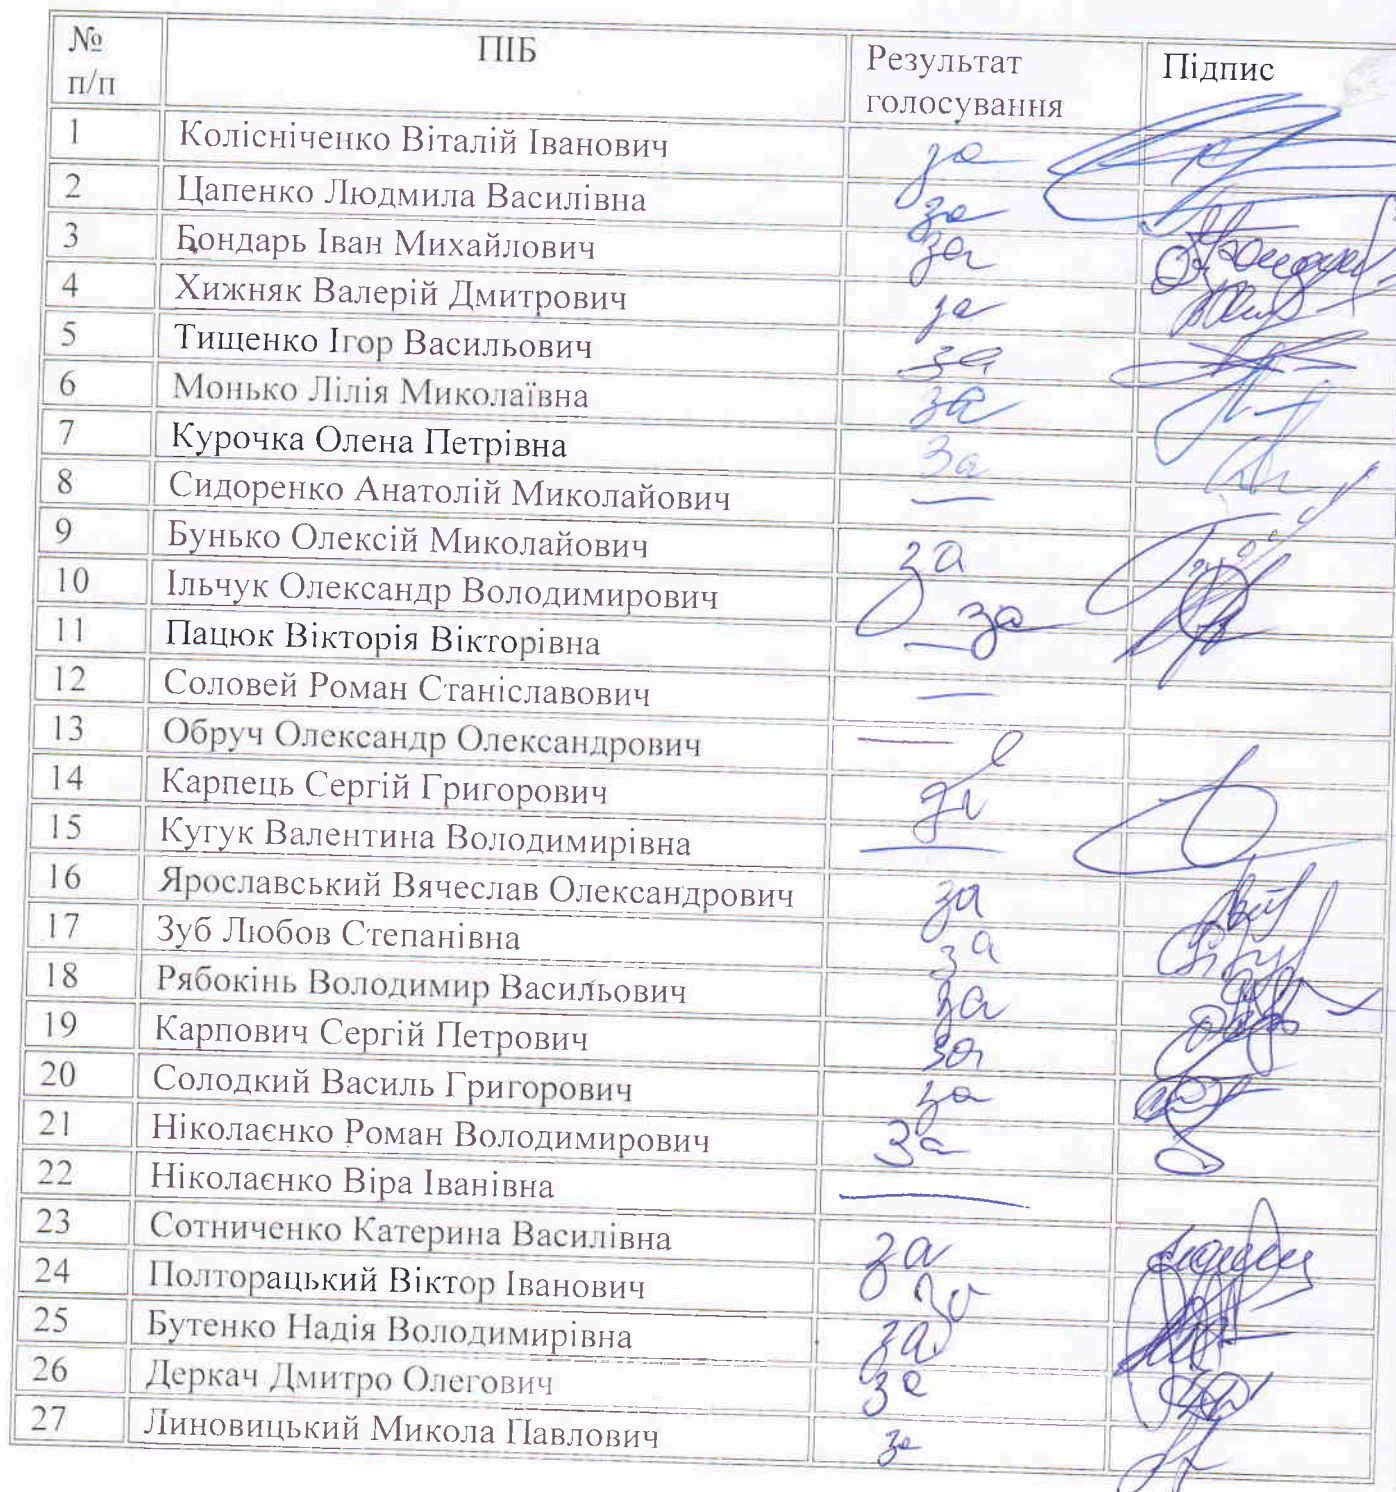 № п/п ПІБ Результат голосування Підпис
1 Колісніченко Віталій Іванович за
2 Цапенко Людмила Василівна за
3 Бондарь Іван Михайлович за
4 Хижняк Валерій Дмитрович за
5 Тищенко Ігор Васильович за
6 Монько Лілія Миколаївна за
7 Курочка Олена Петрівна За
8 Сидоренко Анатолій Миколайович —
9 Бунько Олексій Миколайович за
10 Ільчук Олександр Володимирович за
11 Пацюк Вікторія Вікторівна —
12 Соловей Роман Станіславович —
13 Обруч Олександр Олександрович —
14 Карпець Сергій Григорович за
15 Кугук Валентина Володимирівна —
16 Ярославський Вячеслав Олександрович за
17 Зуб Любов Степанівна за
18 Рябокінь Володимир Васильович за
19 Карпович Сергій Петрович за
20 Солодкий Василь Григорович за
21 Ніколаєнко Роман Володимирович За
22 Ніколаєнко Віра Іванівна —
23 Сотниченко Катерина Василівна за
24 Полторацький Віктор Іванович за
25 Бутенко Надія Володимирівна за
26 Деркач Дмитро Олегович за
27 Линовицький Микола Павлович за